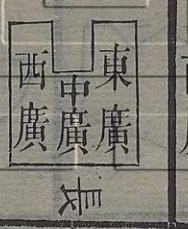 東廣
中廣
西廣
長